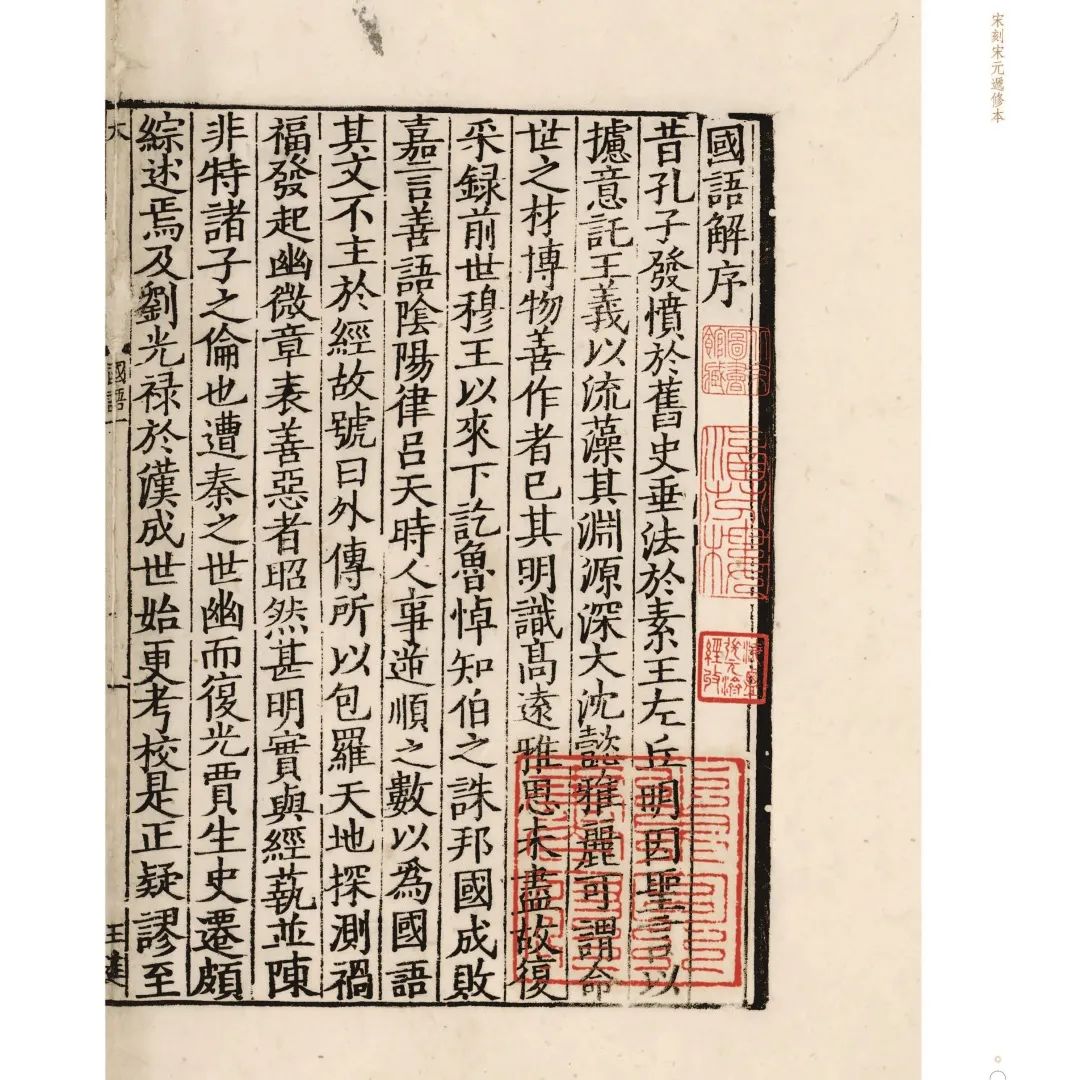 宋刻宋元遞修本
國語解序
昔孔子發憤於舊史垂法於素王左丘明因聖言以
攄意託王義以流藻其淵源深大沈懿雅麗可謂命
世之材博物善作者已其明識高遠雅思未盡故復
采録前世穆王以來下訖魯悼知伯之誅邦國成敗
嘉言善語隂陽律吕天時人事逆順之數以為國語
其文不主於經故號曰外傳所以包羅天地探測禍
福發起幽微章表善惡者昭然甚明實與經藝並陳
非特諸子之倫也遭秦之世幽而復光賈生史遷頗
綜述焉及劉光禄於漢成世始更考校是正疑謬至
國語一
涵芬樓
海鹽張元濟經收